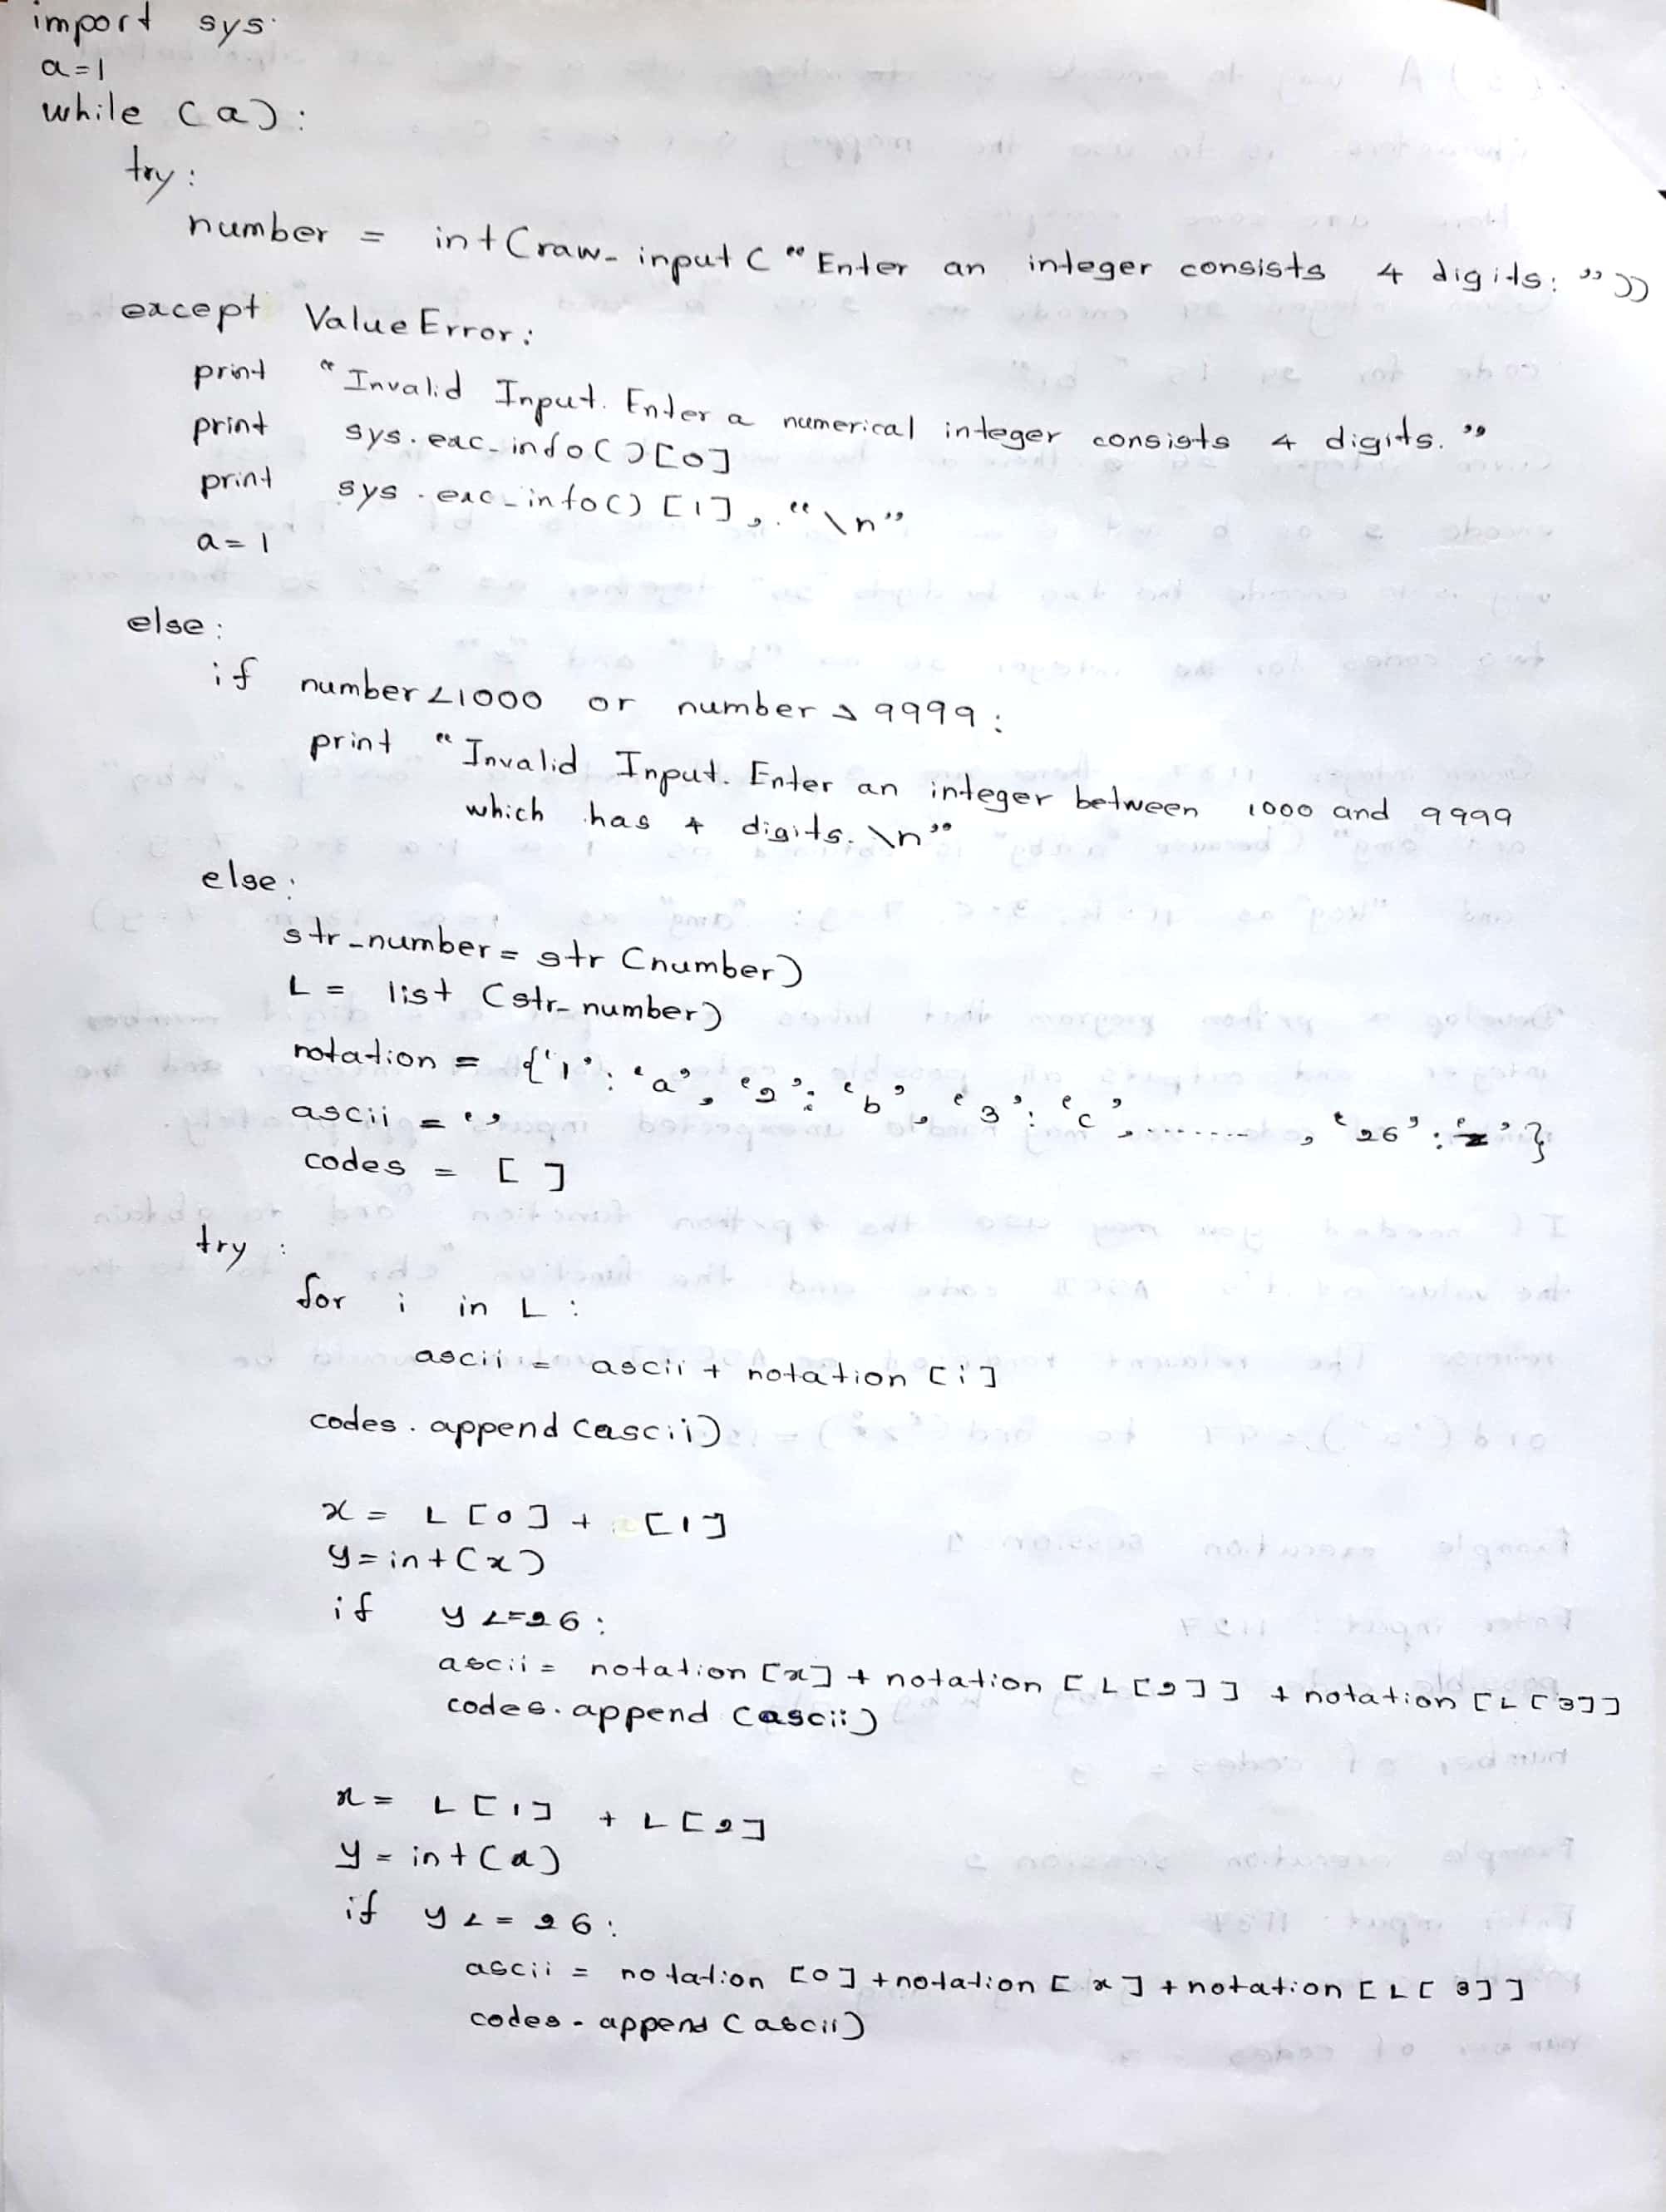 import sys
a=1
while (a):
try:
number = int(raw_input("Enter an integer consists 4 digits: "))
except ValueError:
print "Invalid Input. Enter a numerical integer consists 4 digits."
print sys.exc_info()[0]
print sys.exc_info()[1], "\n"
a=1
else:
if number<1000 or number>9999:
print "Invalid Input. Enter an integer between 1000 and 9999
which has 4 digits.\n"
else:
str_number = str(number)
L = list(str_number)
notation = {'1':'a', '2':'b', '3':'c', ........, '26':'z'}
ascii = ''
codes = []
try:
for i in L:
ascii = ascii + notation[i]
codes.append(ascii)
x = L[0] + [1]
y=int(x)
if y<=26:
ascii = notation[x] + notation[L[2]] + notation[L[3]]
codes.append(ascii)
x = L[1] + L[2]
y = int(x)
if y<=26:
ascii = notation[0]+notation[x]+notation[L[3]]
codes.append(ascii)